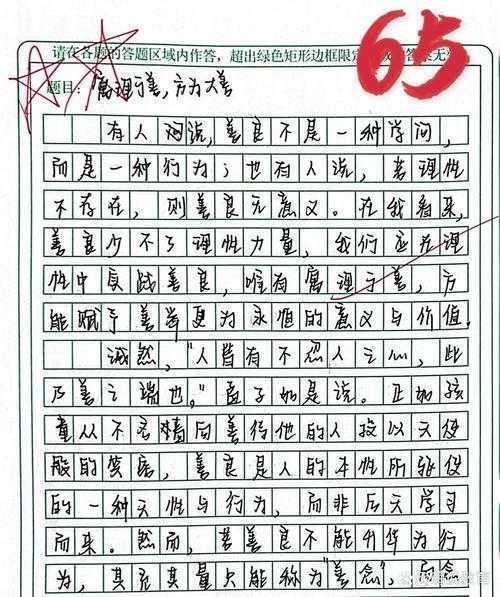 65
请在各题的答题区域内作答，超出绿色矩形边框限定答案无
题目：寓理于善，方为大善
有人说，善良不是一种学问，
而是一种行为；也有人说，若理性
不存在，则善良无意义。在我看来，
善良少不了理性力量，我们应在理
性中负善良，唯有寓理于善，方
能赋予善举更为永恒的意义与价值。
诚然，“人皆有不忍人之心，此
乃善之端也。”孟子如是说。正如孩
童从不吝啬向善待他的人投以天使
般的笑容，善良是人的本性所驱使
的一种天性与行为，而非后天学习
而来。然而，若善良不能升华为行
为，其充其量只能称为“善念”，